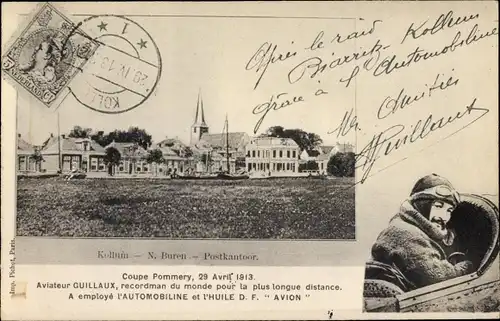 1
29 IV 13
KOLL
Après le raid
Biarritz Kollum
grâce à l'Automobiline
Mes Amitiés
Guillaux
Kollum — N. Buren — Postkantoor.
Coupe Pommery, 29 Avril 1913.
Aviateur GUILLAUX, recordman du monde pour la plus longue distance.
A employé l'AUTOMOBILINE et l'HUILE D. F. " AVION "
Imp. Pichot, Paris.